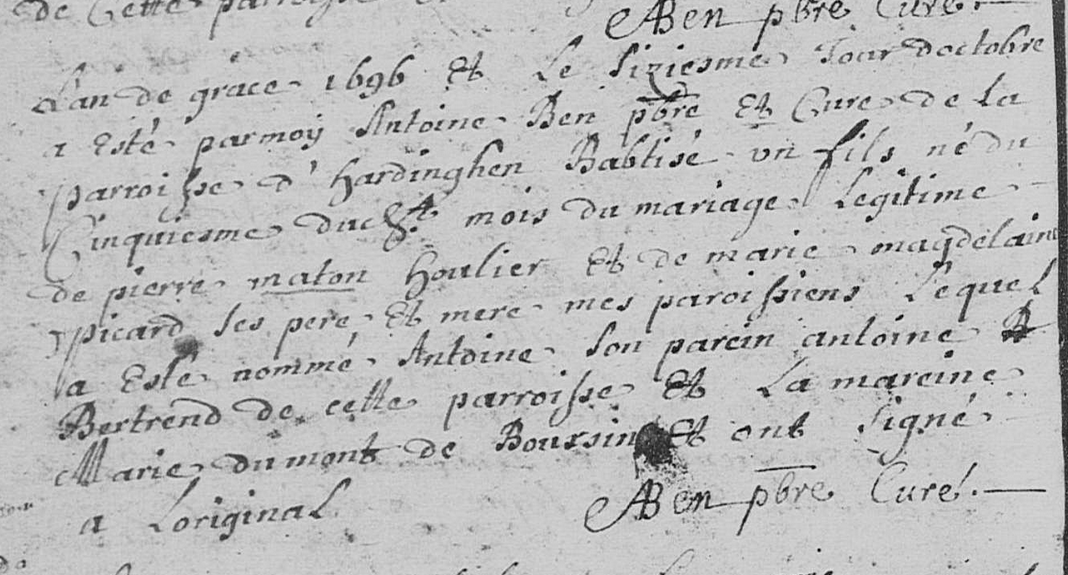 de Cette parroisse
ABen pbre Curé.
L'an de grace 1696 et Le Siziesme Jour doctobre
a Esté parmoy Antoine Ben pbre et Cure de La
parroisse d'hardinghen Babtisé un fils né du
Cinquiesme dudt mois du mariage Legitime
de pierre maton houlier et de marie magdelaine
picard ses pere et mere mes paroissiens Lequel
a Esté nommé Antoine son parein antoine
Bertrend de cette parroisse et La mareine
Marie dumont de Boursin et ont signé
a Loriginal ABen pbre Curé.